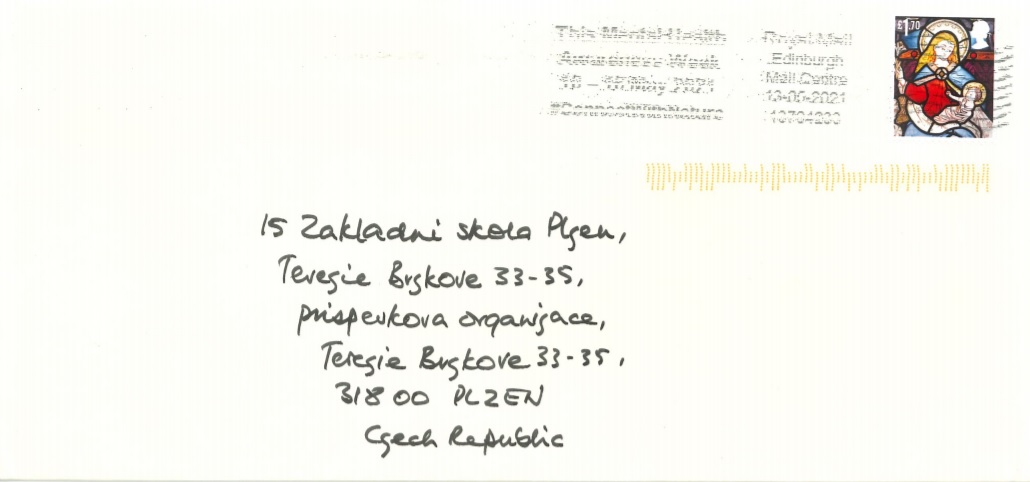 This Mental Health
Awareness Week
10 – 16 May 2021
#ConnectWithNature
Royal Mail
Edinburgh
Mail Centre
13-05-2021
£1.70
15 Zakladni skola Plzen,
Terezie Brzkove 33-35,
prispevkova organizace,
Terezie Brzkove 33-35,
318 00 PLZEN
Czech Republic